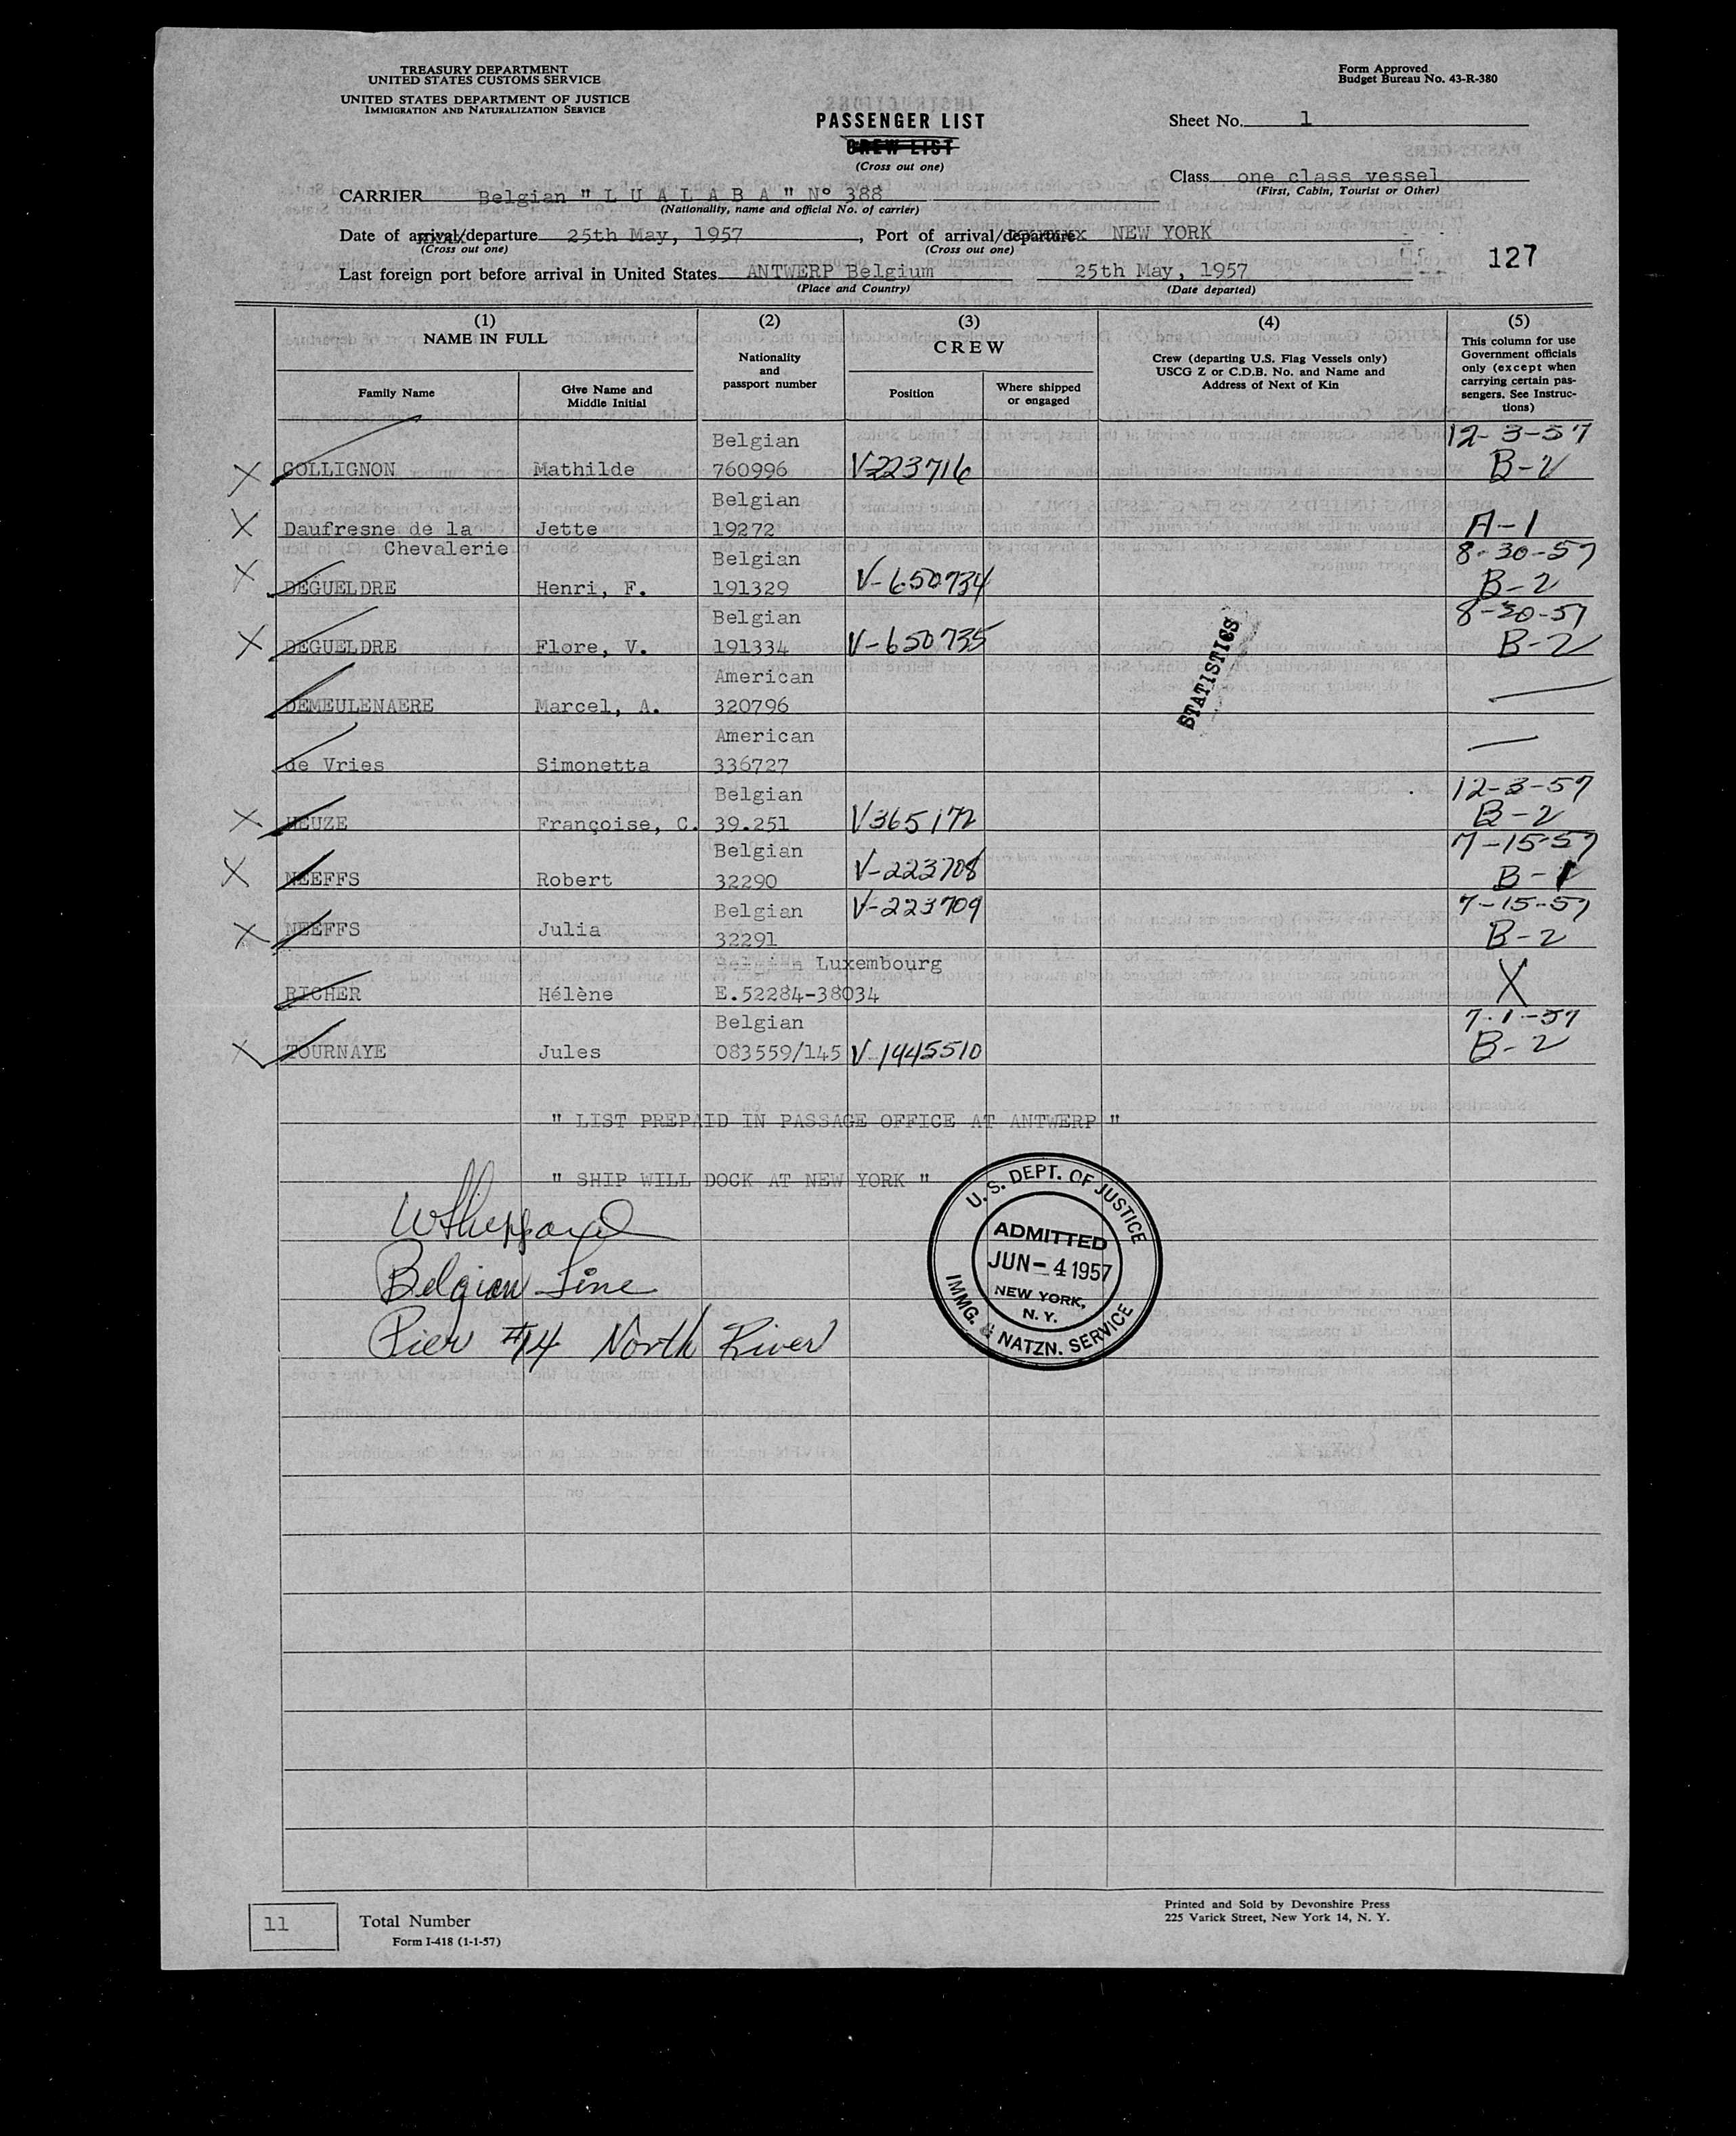 TREASURY DEPARTMENT
UNITED STATES CUSTOMS SERVICE
UNITED STATES DEPARTMENT OF JUSTICE
IMMIGRATION AND NATURALIZATION SERVICE
Form Approved
Budget Bureau No. 43-R-380
PASSENGER LIST
CREW LIST
(Cross out one)
Sheet No. 1
Class one class vessel
(First, Cabin, Tourist or Other)
CARRIER Belgian " L U A L A B A " N° 388
(Nationality, name and official No. of carrier)
Date of arrival/departure 25th May, 1957, Port of arrival/departure NEW YORK
(Cross out one) (Cross out one)
127
Last foreign port before arrival in United States ANTWERP Belgium 25th May, 1957
(Place and Country) (Date departed)
(1) (2) (3) (4) (5)
NAME IN FULL
Family Name
Give Name and
Middle Initial
Nationality
and
passport number
CREW
Position
Where shipped
or engaged
Crew (departing U.S. Flag Vessels only)
USCG Z or C.D.B. No. and Name and
Address of Next of Kin
This column for use
Government officials
only (except when
carrying certain pas-
sengers. See Instruc-
tions)
Belgian 12-3-57
X COLLIGNON Mathilde 760996 V223716 B-2
Belgian
X Daufresne de la Jette 19272 A-1
Chevalerie Belgian 8-30-57
X DEGUELDRE Henri, F. 191329 V-650734 B-2
Belgian 8-30-57
X DEGUELDRE Flore, V. 191334 V-650735 B-2
American
DEMEULENAERE Marcel, A. 320796
American
de Vries Simonetta 336727
STATISTICS
Belgian 12-3-57
X HEUZE Françoise, C. 39.251 V365172 B-2
Belgian 7-15-57
X NEEFFS Robert 32290 V-223708 B-1
Belgian V-223709 7-15-57
X NEEFFS Julia 32291 B-2
Belgian Luxembourg
RICHER Hélène E.52284-38034 X
Belgian 7-1-57
X TOURNAYE Jules 083559/145 V-1445510 B-2
" LIST PREPAID IN PASSAGE OFFICE AT ANTWERP "
" SHIP WILL DOCK AT NEW YORK "
WSheppard
Belgian Line
Pier #14 North River
U.S. DEPT. OF JUSTICE
ADMITTED
JUN - 4 1957
NEW YORK,
N. Y.
IMMG. & NATZN. SERVICE
11 Total Number
Form I-418 (1-1-57)
Printed and Sold by Devonshire Press
225 Varick Street, New York 14, N. Y.